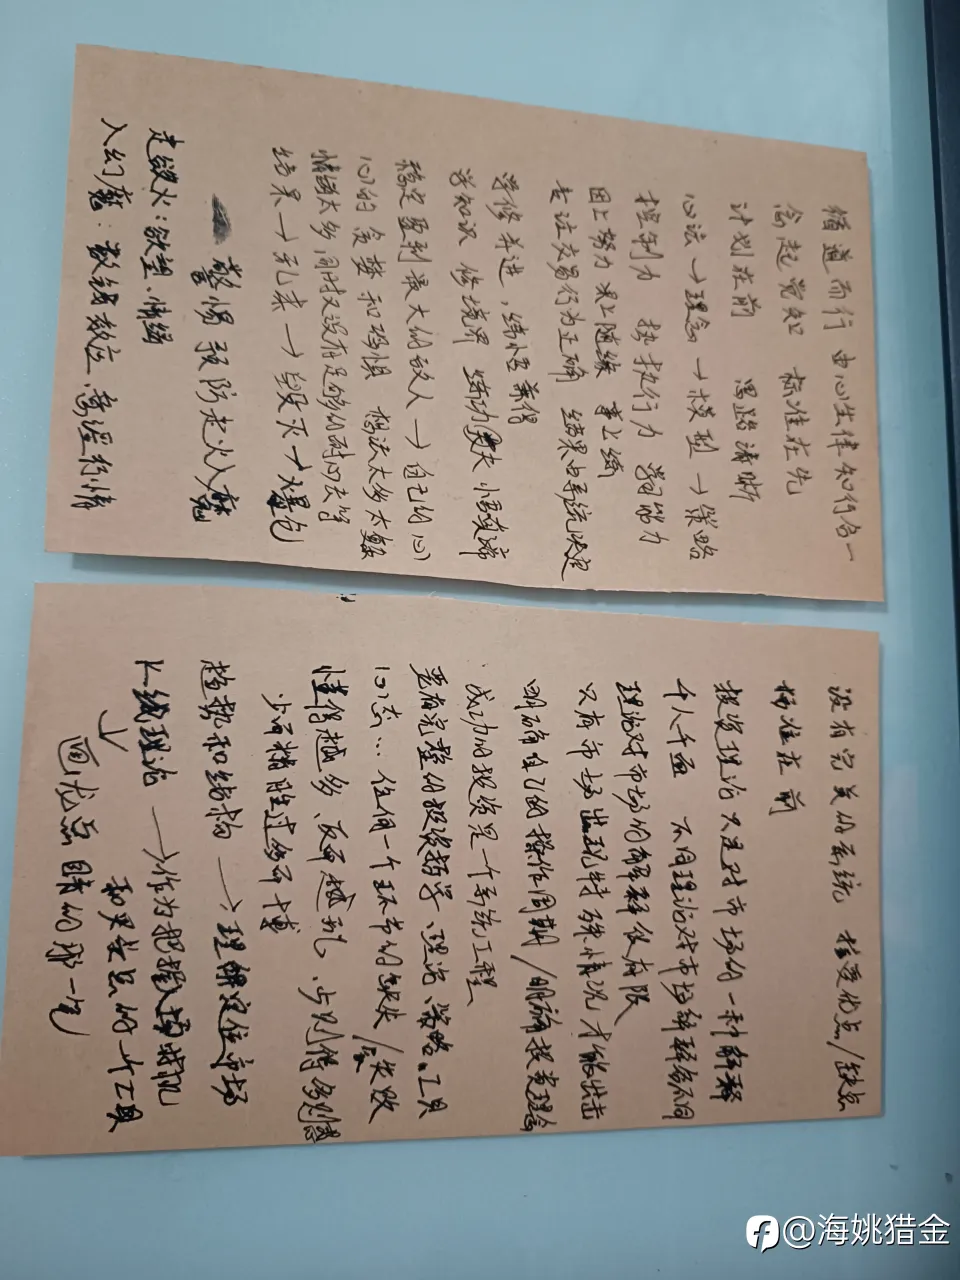 循道而行 由心生律 知行合一
念起觉知 标准在先
计划在前 思路清晰
心法→理念→模型→策略
控制力 执行力 学习能力
因上努力 果上随缘 事上练
专注交易行为正确 结果由系统决定
学修并进,练悟兼得
学知识 修境界 练功夫 悟真谛
稳定盈利最大的敌人→自己的心
心的贪婪和恐惧 想法太多太复杂
情绪太多同时又没有足够的耐心去等
结果→乱来→毁灭→大暴仓
警惕预防走火入魔
走欲火:欲望、情绪
入幻魔:数钱效应、意淫行情
没有完美的系统 接受优点/缺点
标准在前
投资理论只是对市场的一种解释
千人千面 不同理论对市场解释各不同
理论对市场的解释仅有限
只有市场出现特殊情况才能出击
明确自己的操作周期/明确投资理念
成功的投资是个系统工程
要有完整的投资哲学、理论、策略、工具
心态...任何一个环节的缺失/会失败
懂得越多、反而越乱、少则得多则惑
少而精胜过多而博
趋势和结构→理解定位市场
K线理论→作为把握入场时机
和买卖点的一个工具
↓
画龙点睛的那一笔
@海姚猎金